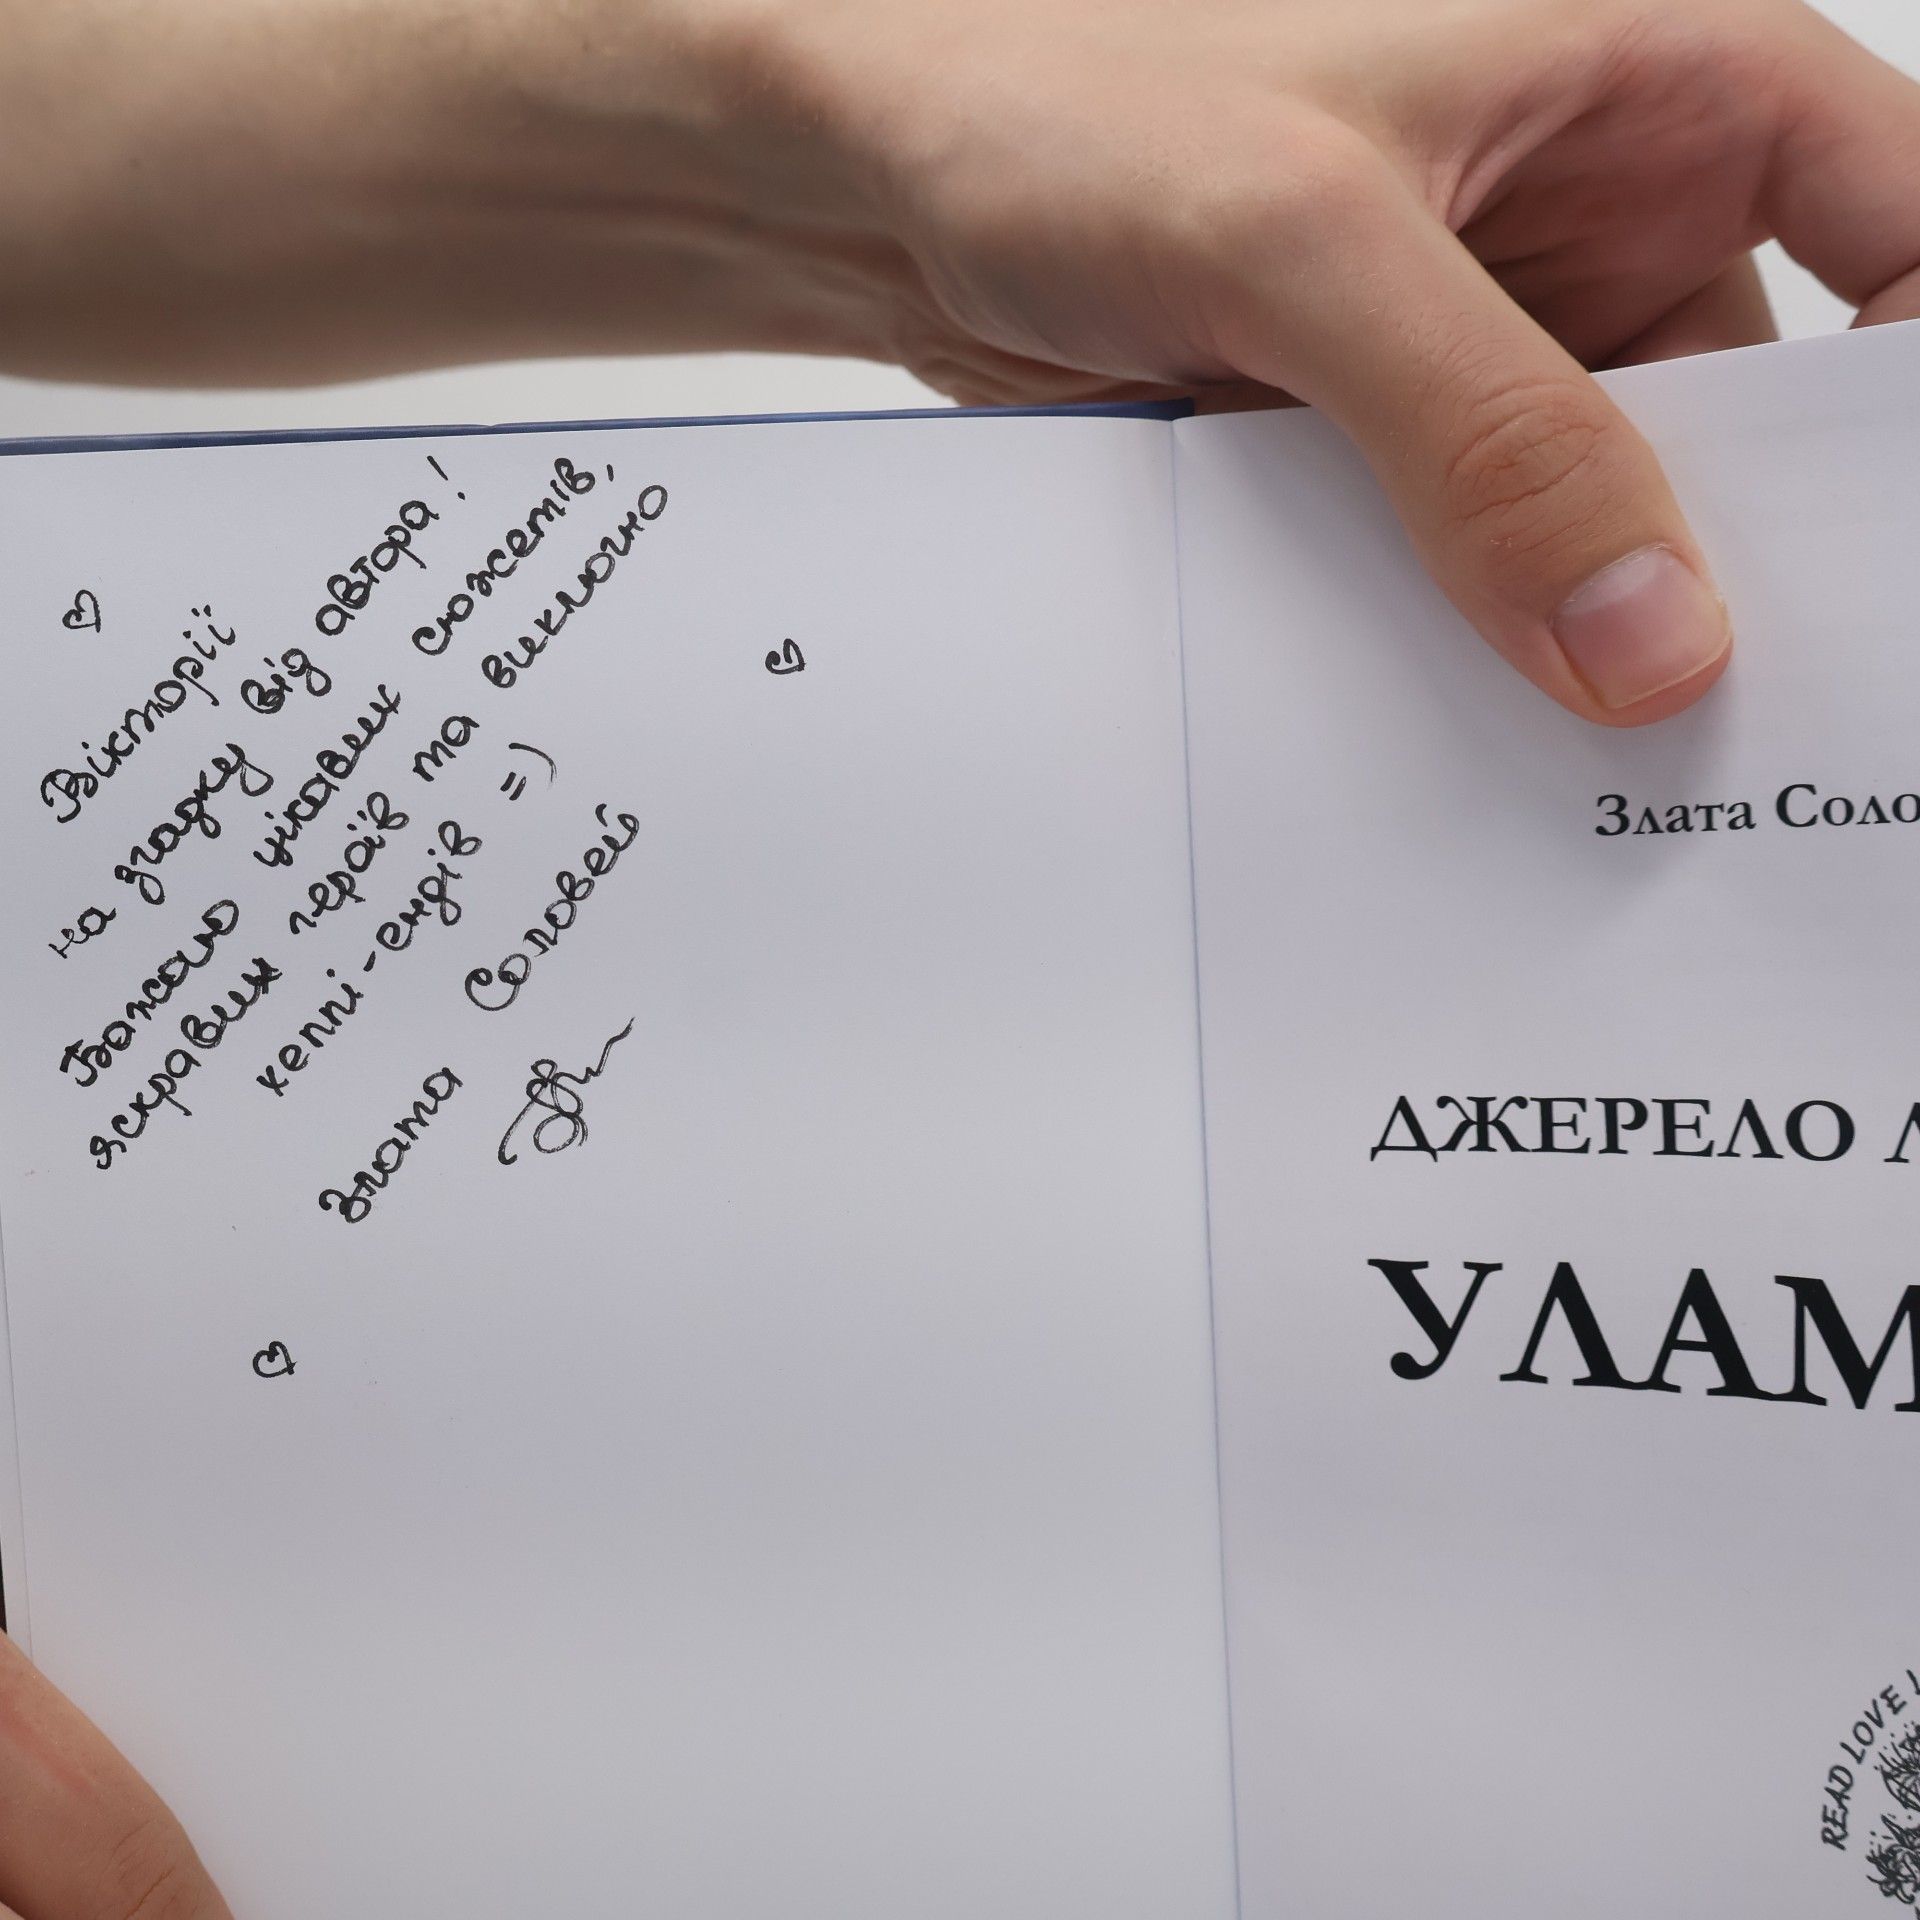 Вікторії
на згадку від автора!
Бажаю цікавих сюжетів,
яскравих героїв та виключно
хеппі-ендів =)
Злата Соловей
Злата Соло
ДЖЕРЕЛО
УЛАМ
READ LOVE